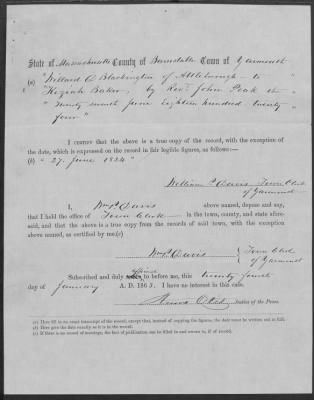 State of Massachusetts County of Barnstable Town of Yarmouth
(a) "Willard O Blackington of Attleborough to "
" Keziah Baker, by Revd John Peak the "
" Twenty seventh June Eighteen hundred Twenty
four "
I CERTIFY that the above is a true copy of the record, with the exception of
the date, which is expressed on the record in fair legible figures, as follows:—
(b) " 27. June 1824 "
William P Davis Town Clerk
of Yarmouth
I, Wm P. Davis above named, depose and say,
that I hold the office of Town Clerk in the town, county, and state afore-
said, and that the above is a true copy from the records of said town, with the exception
above named, as certified by me (c)
Wm P. Davis { Town Clerk
of Yarmouth
Subscribed and duly affirmed to before me, this twenty fourth
day of January A. D. 1863. I have no interest in this case.
Justice of the Peace.
(a) Here fill in an exact transcript of the record, except that, instead of copying the figures, the date must be written out in full.
(b) Here give the date exactly as it is in the record.
(c) If there is no record of marriage, the fact of publication can be filled in and sworn to, if of record.